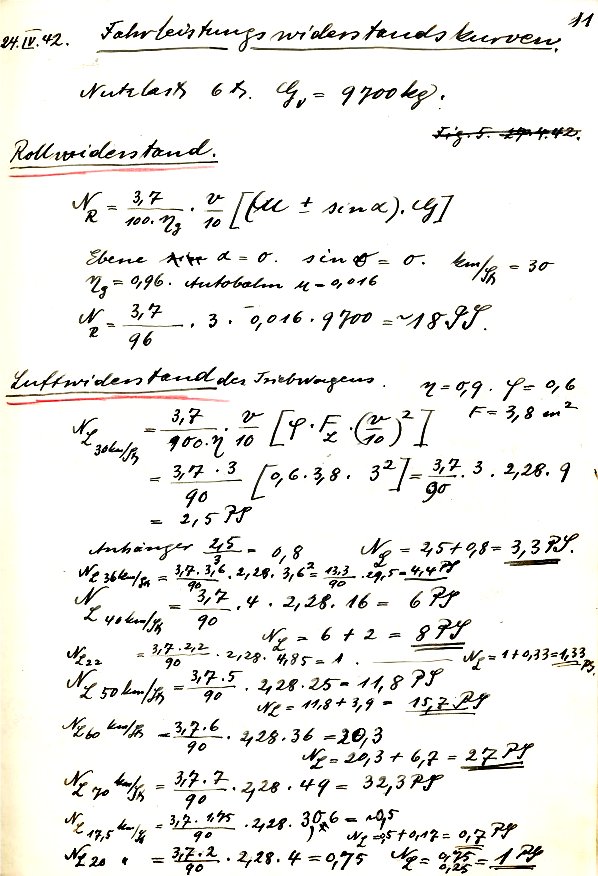 11
24.IV.42. Fahrleistungswiderstandskurven.
Nutzlast 6 t. Gv = 9700 kg.
Fig. 5. 27.4.42.
Rollwiderstand.
N_R = 3,7/100·η_g · v/10 [(μ ± sin α) · G]
Ebene α = 0. sin = 0. km/h = 30
η_g = 0,96. Autobahn μ = 0,016
N_R = 3,7/96 · 3 · 0,016 · 9700 = ~18 PS.
Luftwiderstand des Triebwagens. η = 0,9. φ = 0,6
F = 3,8 m²
N_L 30km/h = 3,7/100·η · v/10 [φ · F_L · (v/10)²]
= 3,7 · 3/90 [0,6 · 3,8 · 3²] = 3,7/90 · 3 · 2,28 · 9
= 2,5 PS
Anhänger 2,5/3 = 0,8 N_L = 2,5 + 0,8 = 3,3 PS.
N_L 36km/h = 3,7 · 3,6/90 · 2,28 · 3,6² = 13,3/90 · 29,5 = 4,4 PS
N_L 40km/h = 3,7/90 · 4 · 2,28 · 16 = 6 PS
N_L = 6 + 2 = 8 PS
N_L22 = 3,7 · 2,2/90 · 2,28 · 4,85 = 1. N_L = 1 + 0,33 = 1,33 PS.
N_L 50km/h = 3,7 · 5/90 · 2,28 · 25 = 11,8 PS
N_L = 11,8 + 3,9 = 15,7 PS
N_L60 km/h = 3,7 · 6/90 · 2,28 · 36 = 20,3
N_L = 20,3 + 6,7 = 27 PS
N_L 70 km/h = 3,7 · 7/90 · 2,28 · 49 = 32,3 PS
N_L 17,5 km/h = 3,7 · 1,75/90 · 2,28 · 3,06 = ~0,5
N_L = 0,5 + 0,17 = 0,7 PS
N_L 20 " = 3,7 · 2/90 · 2,28 · 4 = 0,75 N_L = 0,75/0,25 = 1 PS